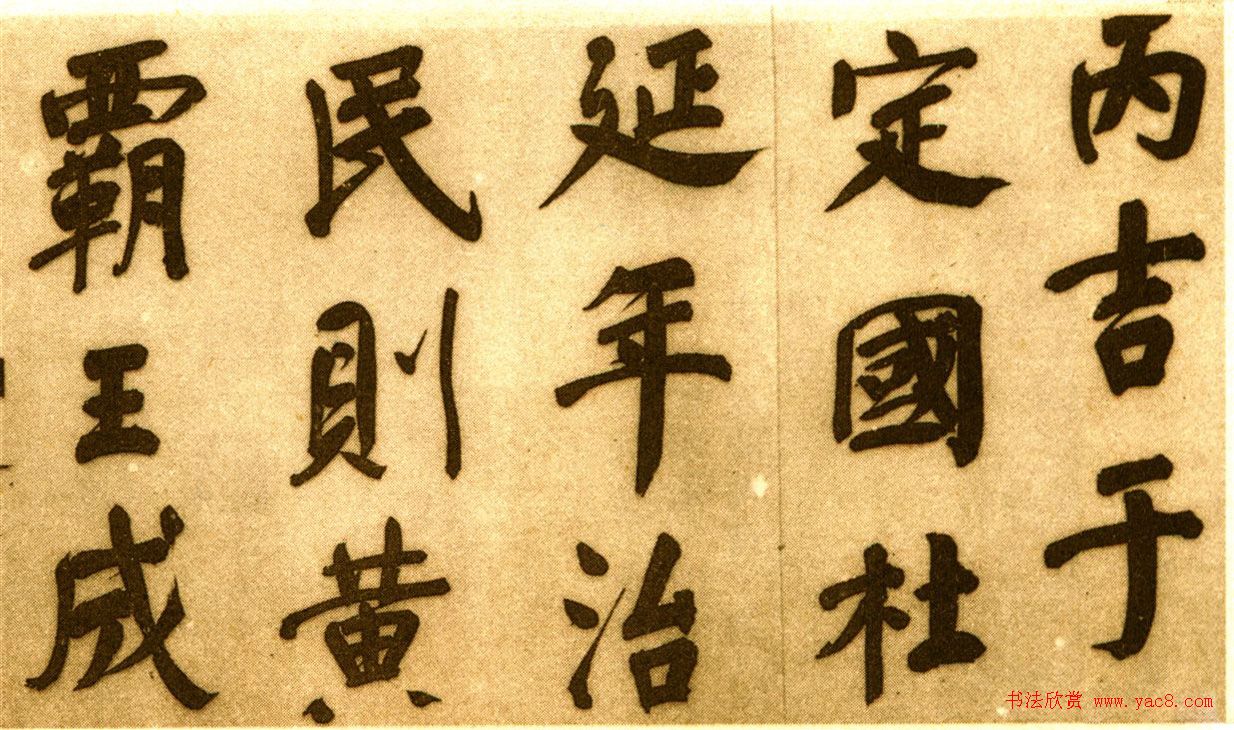 丙吉于
定國杜
延年治
民則黄
霸王成
书法欣赏 www.yac8.com